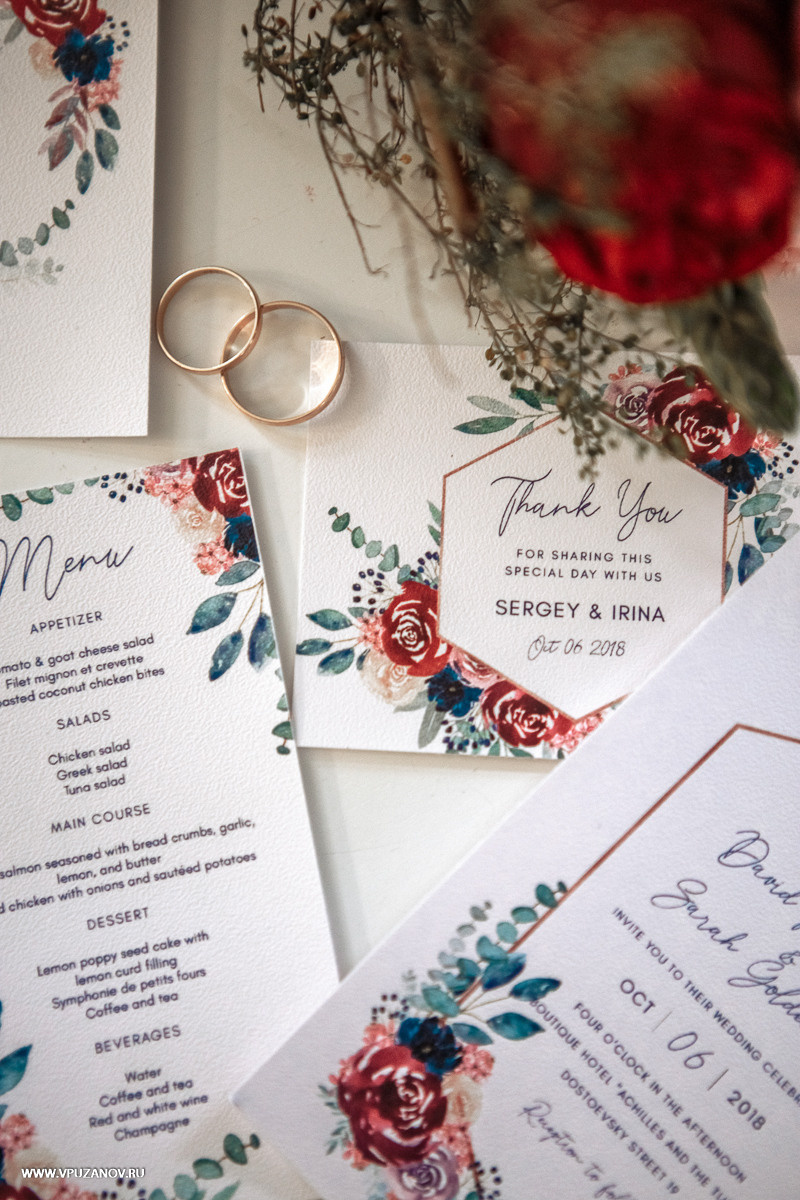 Thank You
FOR SHARING THIS
SPECIAL DAY WITH US
SERGEY & IRINA
Oct 06 2018
Menu
APPETIZER
& goat cheese salad
Filet mignon et crevette
coconut chicken bites
SALADS
Chicken salad
Greek salad
Tuna salad
MAIN COURSE
salmon seasoned with bread crumbs, garlic,
lemon, and butter
chicken with onions and sautéed potatoes
DESSERT
Lemon poppy seed cake with
lemon curd filling
Symphonie de petits fours
Coffee and tea
BEVERAGES
Water
Coffee and tea
Red and white wine
Champagne
David
&
Sarah
INVITE YOU TO THEIR WEDDING
OCT | 06 | 2018
FOUR O'CLOCK IN THE AFTERNOON
BOUTIQUE HOTEL "ACHILLES AND THE
DOSTOEVSKY STREET 19
Reception to
WWW.VPUZANOV.RU